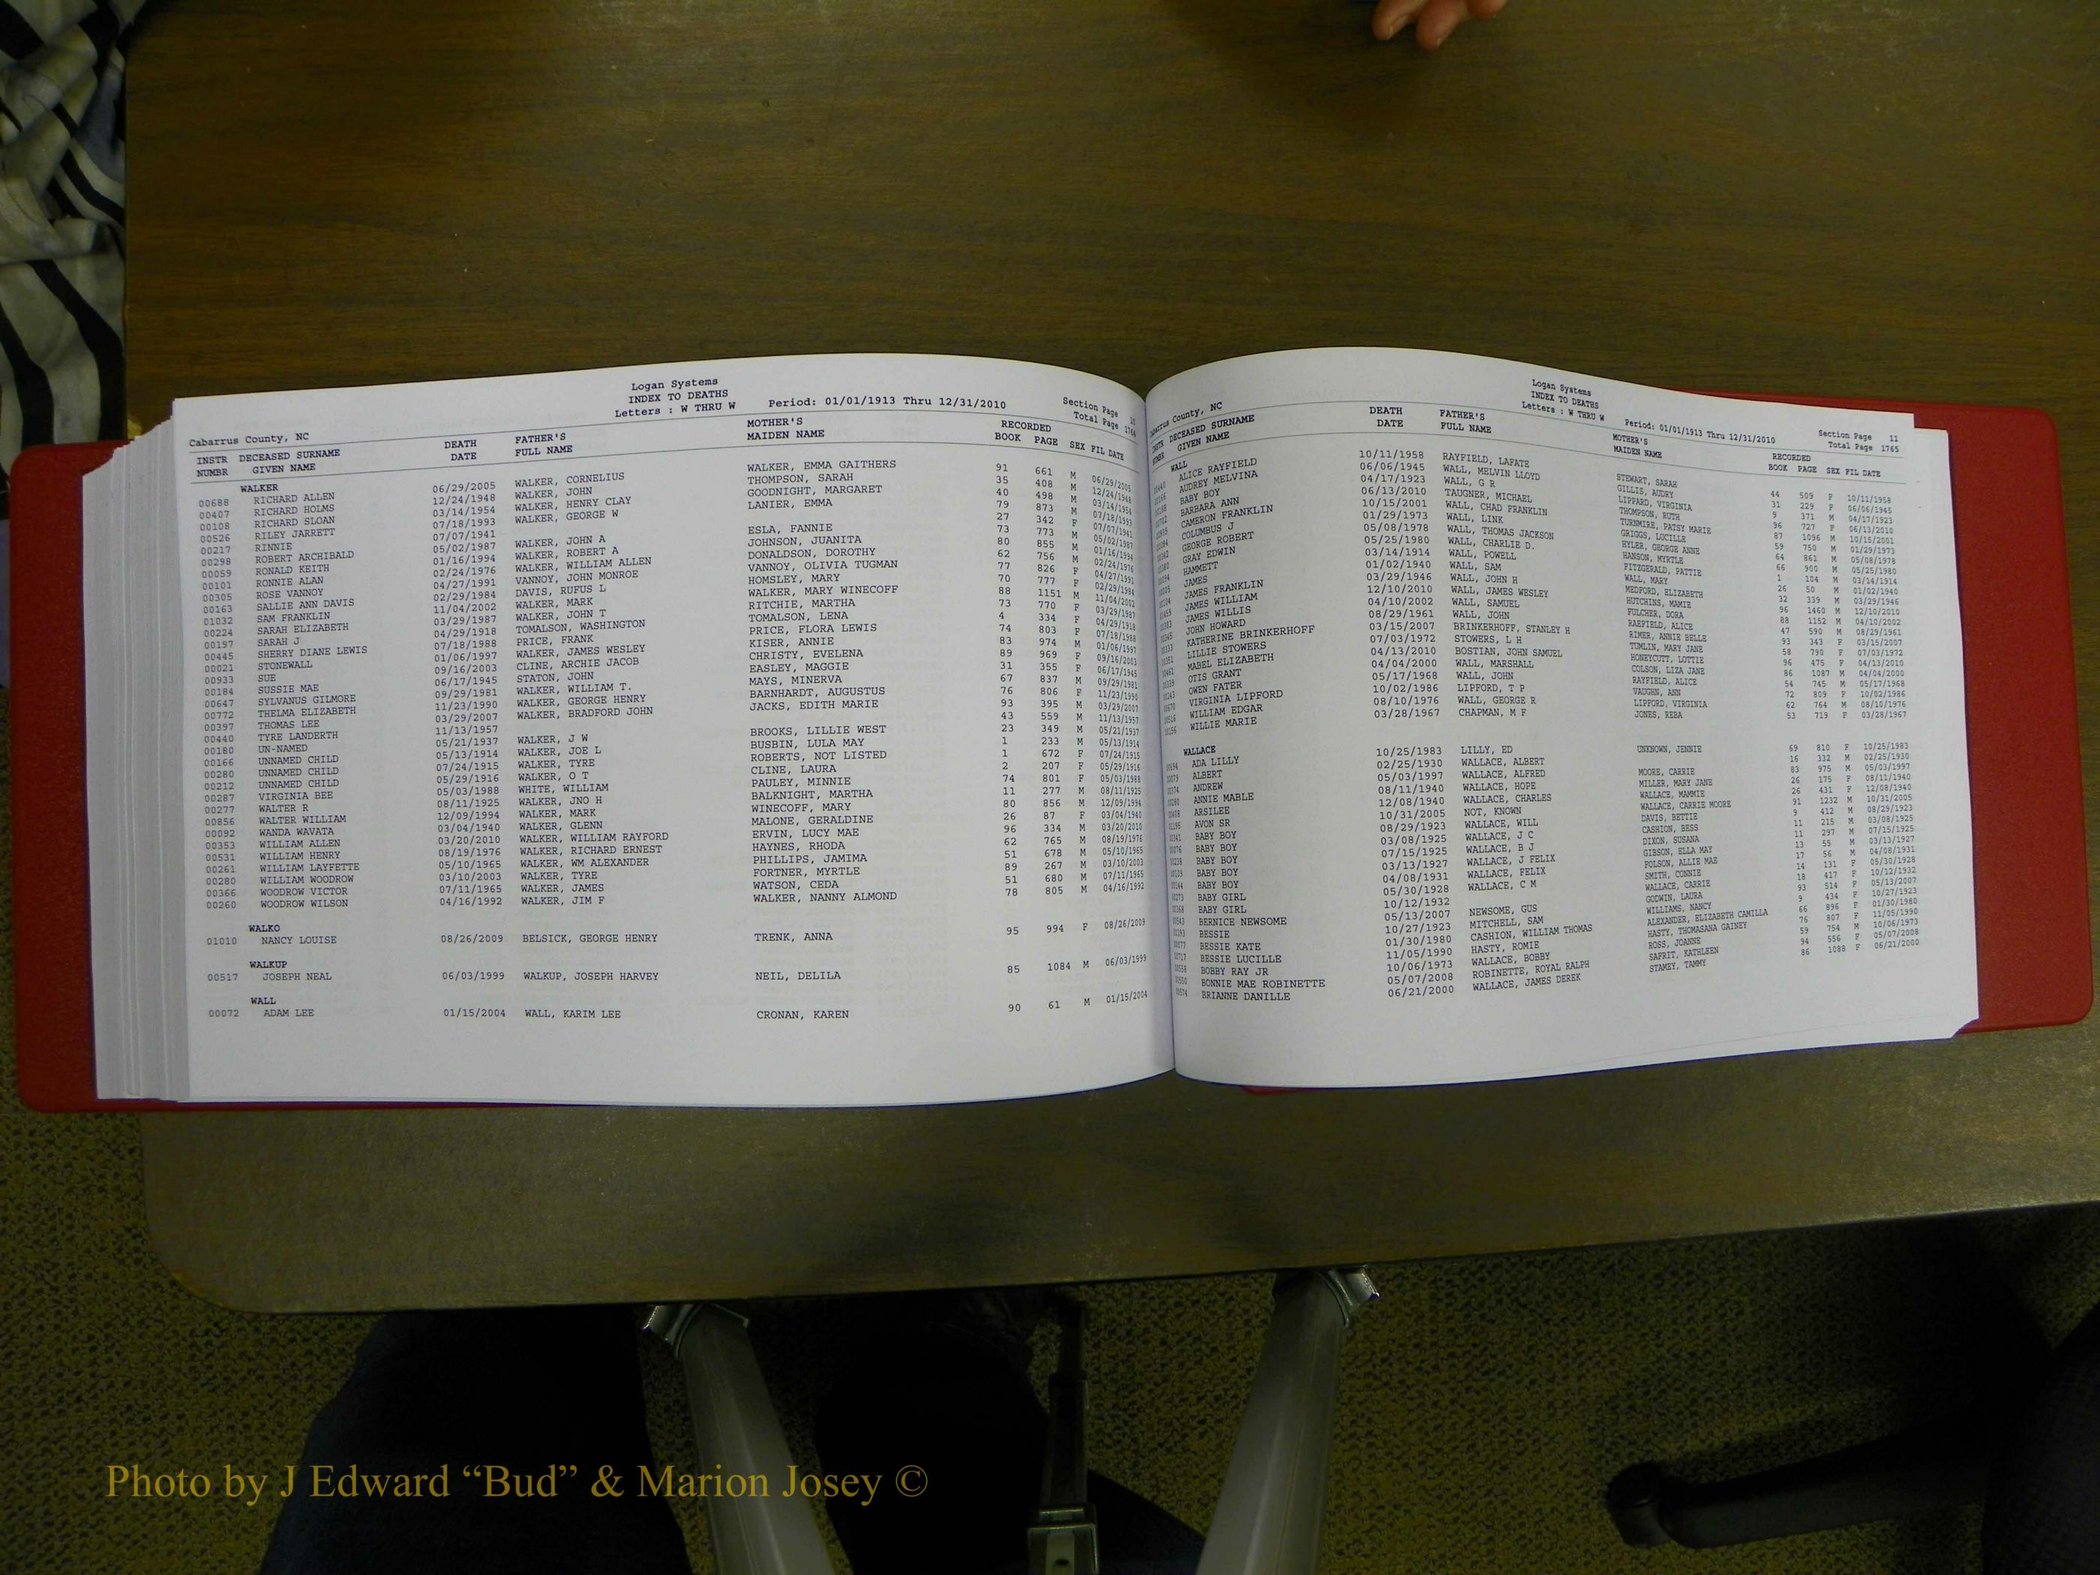 Logan Systems
INDEX TO DEATHS
Letters : W THRU W Period: 01/01/1913 Thru 12/31/2010
Section Page 10
Total Page 1764
Cabarrus County, NC
INSTR DECEASED SURNAME DEATH FATHER'S MOTHER'S RECORDED
NUMBR GIVEN NAME DATE FULL NAME MAIDEN NAME BOOK PAGE SEX FIL DATE
WALKER
00688 RICHARD ALLEN 06/29/2005 WALKER, CORNELIUS WALKER, EMMA GAITHERS 91 661 M 06/29/2005
00407 RICHARD HOLMS 12/24/1948 WALKER, JOHN THOMPSON, SARAH 35 408 M 12/24/1948
00108 RICHARD SLOAN 03/14/1954 WALKER, HENRY CLAY GOODNIGHT, MARGARET 40 498 M 03/14/1954
00526 RILEY JARRETT 07/18/1993 WALKER, GEORGE W LANIER, EMMA 79 873 M 07/18/1993
00217 RINNIE 07/07/1941 27 342 F 07/07/1941
00298 ROBERT ARCHIBALD 05/02/1987 WALKER, JOHN A ESLA, FANNIE 73 773 M 05/02/1987
00059 RONALD KEITH 01/16/1994 WALKER, ROBERT A JOHNSON, JUANITA 80 855 M 01/16/1994
00101 RONNIE ALAN 02/24/1976 WALKER, WILLIAM ALLEN DONALDSON, DOROTHY 62 756 M 02/24/1976
00305 ROSE VANNOY 04/27/1991 VANNOY, JOHN MONROE VANNOY, OLIVIA TUGMAN 77 826 F 04/27/1991
00163 SALLIE ANN DAVIS 02/29/1984 DAVIS, RUFUS L HOMSLEY, MARY 70 777 F 02/29/1984
01032 SAM FRANKLIN 11/04/2002 WALKER, MARK WALKER, MARY WINECOFF 88 1151 M 11/04/2002
00224 SARAH ELIZABETH 03/29/1987 WALKER, JOHN T RITCHIE, MARTHA 73 770 F 03/29/1987
00197 SARAH J 04/29/1918 TOMALSON, WASHINGTON TOMALSON, LENA 4 334 F 04/29/1918
00445 SHERRY DIANE LEWIS 07/18/1988 PRICE, FRANK PRICE, FLORA LEWIS 74 803 F 07/18/1988
00021 STONEWALL 01/06/1997 WALKER, JAMES WESLEY KISER, ANNIE 83 974 M 01/06/1997
00933 SUE 09/16/2003 CLINE, ARCHIE JACOB CHRISTY, EVELENA 89 969 F 09/16/2003
00184 SUSSIE MAE 06/17/1945 STATON, JOHN EASLEY, MAGGIE 31 355 F 06/17/1945
00647 SYLVANUS GILMORE 09/29/1981 WALKER, WILLIAM T. MAYS, MINERVA 67 837 M 09/29/1981
00772 THELMA ELIZABETH 11/23/1990 WALKER, GEORGE HENRY BARNHARDT, AUGUSTUS 76 806 F 11/23/1990
00397 THOMAS LEE 03/29/2007 WALKER, BRADFORD JOHN JACKS, EDITH MARIE 93 395 M 03/29/2007
00440 TYRE LANDERTH 11/13/1957 43 559 M 11/13/1957
00180 UN-NAMED 05/21/1937 WALKER, J W BROOKS, LILLIE WEST 23 349 M 05/21/1937
00166 UNNAMED CHILD 05/13/1914 WALKER, JOE L BUSBIN, LULA MAY 1 233 M 05/13/1914
00280 UNNAMED CHILD 07/24/1915 WALKER, TYRE ROBERTS, NOT LISTED 1 672 F 07/24/1915
00212 UNNAMED CHILD 05/29/1916 WALKER, O T CLINE, LAURA 2 207 F 05/29/1916
00287 VIRGINIA BEE 05/03/1988 WHITE, WILLIAM PAULEY, MINNIE 74 801 F 05/03/1988
00277 WALTER R 08/11/1925 WALKER, JNO H BALKNIGHT, MARTHA 11 277 M 08/11/1925
00856 WALTER WILLIAM 12/09/1994 WALKER, MARK WINECOFF, MARY 80 856 M 12/09/1994
00092 WANDA WAVATA 03/04/1940 WALKER, GLENN MALONE, GERALDINE 26 87 F 03/04/1940
00353 WILLIAM ALLEN 03/20/2010 WALKER, WILLIAM RAYFORD ERVIN, LUCY MAE 96 334 M 03/20/2010
00531 WILLIAM HENRY 08/19/1976 WALKER, RICHARD ERNEST HAYNES, RHODA 62 765 M 08/19/1976
00261 WILLIAM LAYFETTE 05/10/1965 WALKER, WM ALEXANDER PHILLIPS, JAMIMA 51 678 M 05/10/1965
00280 WILLIAM WOODROW 03/10/2003 WALKER, TYRE FORTNER, MYRTLE 89 267 M 03/10/2003
00366 WOODROW VICTOR 07/11/1965 WALKER, JAMES WATSON, CEDA 51 680 M 07/11/1965
00260 WOODROW WILSON 04/16/1992 WALKER, JIM F WALKER, NANNY ALMOND 78 805 M 04/16/1992
WALKO
01010 NANCY LOUISE 08/26/2009 BELSICK, GEORGE HENRY TRENK, ANNA 95 994 F 08/26/2009
WALKUP
00517 JOSEPH NEAL 06/03/1999 WALKUP, JOSEPH HARVEY NEIL, DELILA 85 1084 M 06/03/1999
WALL
00072 ADAM LEE 01/15/2004 WALL, KARIM LEE CRONAN, KAREN 90 61 M 01/15/2004
Logan Systems
INDEX TO DEATHS
Letters : W THRU W Period: 01/01/1913 Thru 12/31/2010
Section Page 11
Total Page 1765
Cabarrus County, NC
INSTR DECEASED SURNAME DEATH FATHER'S MOTHER'S RECORDED
GIVEN NAME DATE FULL NAME MAIDEN NAME BOOK PAGE SEX FIL DATE
WALL
ALICE RAYFIELD 10/11/1958 RAYFIELD, LAFATE STEWART, SARAH 44 509 F 10/11/1958
AUDREY MELVINA 06/06/1945 WALL, MELVIN LLOYD GILLIS, AUDRY 31 229 F 06/06/1945
BABY BOY 04/17/1923 WALL, G R LIPPARD, VIRGINIA 9 371 M 04/17/1923
BARBARA ANN 06/13/2010 TAUGNER, MICHAEL THOMPSON, RUTH 96 727 F 06/13/2010
CAMERON FRANKLIN 10/15/2001 WALL, CHAD FRANKLIN TURNMIRE, PATSY MARIE 87 1096 M 10/15/2001
COLUMBUS J 01/29/1973 WALL, LINK GRIGGS, LUCILLE 59 750 M 01/29/1973
GEORGE ROBERT 05/08/1978 WALL, THOMAS JACKSON HYLER, GEORGE ANNE 64 861 M 05/08/1978
GRAY EDWIN 05/25/1980 WALL, CHARLIE D. HANSON, MYRTLE 66 900 M 05/25/1980
HAMMETT 03/14/1914 WALL, POWELL FITZGERALD, PATTIE 1 104 M 03/14/1914
JAMES 01/02/1940 WALL, SAM WALL, MARY 26 50 M 01/02/1940
JAMES FRANKLIN 03/29/1946 WALL, JOHN H MEDFORD, ELIZABETH 32 339 M 03/29/1946
JAMES WILLIAM 12/10/2010 WALL, JAMES WESLEY HUTCHINS, MAMIE 96 1460 M 12/10/2010
JAMES WILLIS 04/10/2002 WALL, SAMUEL FULCHER, DORA 88 1152 M 04/10/2002
JOHN HOWARD 08/29/1961 WALL, JOHN RAEFIELD, ALICE 47 590 M 08/29/1961
KATHERINE BRINKERHOFF 03/15/2007 BRINKERHOFF, STANLEY H RIMER, ANNIE BELLE 93 343 F 03/15/2007
LILLIE STOWERS 07/03/1972 STOWERS, L H TUMLIN, MARY JANE 58 790 F 07/03/1972
MABEL ELIZABETH 04/13/2010 BOSTIAN, JOHN SAMUEL HONEYCUTT, LOTTIE 96 475 F 04/13/2010
OTIS GRANT 04/04/2000 WALL, MARSHALL COLSON, LIZA JANE 86 1087 M 04/04/2000
OWEN FATER 05/17/1968 WALL, JOHN RAYFIELD, ALICE 54 745 M 05/17/1968
VIRGINIA LIPFORD 10/02/1986 LIPFORD, T P VAUGHN, ANN 72 809 F 10/02/1986
WILLIAM EDGAR 08/10/1976 WALL, GEORGE R LIPFORD, VIRGINIA 62 764 M 08/10/1976
WILLIE MARIE 03/28/1967 CHAPMAN, M F JONES, REBA 53 719 F 03/28/1967
WALLACE
ADA LILLY 10/25/1983 LILLY, ED UNKNOWN, JENNIE 69 810 F 10/25/1983
ALBERT 02/25/1930 WALLACE, ALBERT 16 332 M 02/25/1930
ANDREW 05/03/1997 WALLACE, ALFRED MOORE, CARRIE 83 975 M 05/03/1997
ANNIE MABLE 08/11/1940 WALLACE, HOPE MILLER, MARY JANE 26 175 F 08/11/1940
ARSILEE 12/08/1940 WALLACE, CHARLES WALLACE, MAMMIE 26 431 F 12/08/1940
AVON SR 10/31/2005 NOT, KNOWN WALLACE, CARRIE MOORE 91 1232 M 10/31/2005
BABY BOY 08/29/1923 WALLACE, WILL DAVIS, BETTIE 9 412 M 08/29/1923
BABY BOY 03/08/1925 WALLACE, J C CASHION, BESS 11 215 M 03/08/1925
BABY BOY 07/15/1925 WALLACE, B J DIXON, SUSANA 11 297 M 07/15/1925
BABY BOY 03/13/1927 WALLACE, J FELIX GIBSON, ELLA MAY 13 55 M 03/13/1927
BABY BOY 04/08/1931 WALLACE, FELIX FOLSON, ALLIE MAE 17 56 M 04/08/1931
BABY GIRL 05/30/1928 WALLACE, C M SMITH, CONNIE 14 131 F 05/30/1928
BABY GIRL 10/12/1932 WALLACE, CARRIE 18 417 F 10/12/1932
BERNICE NEWSOME 05/13/2007 NEWSOME, GUS GODWIN, LAURA 93 514 F 05/13/2007
BESSIE 10/27/1923 MITCHELL, SAM WILLIAMS, NANCY 9 434 F 10/27/1923
BESSIE KATE 01/30/1980 CASHION, WILLIAM THOMAS ALEXANDER, ELIZABETH CAMILLA 66 896 F 01/30/1980
BESSIE LUCILLE 11/05/1990 HASTY, ROMIE HASTY, THOMASANA GAINEY 76 807 F 11/05/1990
BOBBY RAY JR 10/06/1973 WALLACE, BOBBY ROSS, JOANNE 59 754 M 10/06/1973
BONNIE MAE ROBINETTE 05/07/2008 ROBINETTE, ROYAL RALPH SAFRIT, KATHLEEN 94 556 F 05/07/2008
BRIANNE DANILLE 06/21/2000 WALLACE, JAMES DEREK STAMEY, TAMMY 86 1088 F 06/21/2000
Photo by J Edward “Bud” & Marion Josey ©